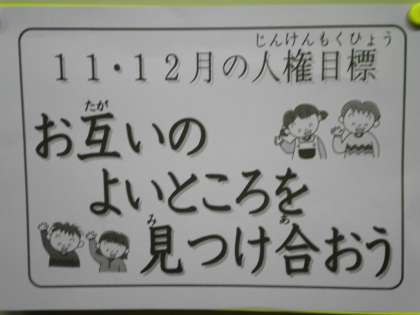 じんけんもくひょう
11・12月の人権目標
たが
お互いの
よいところを
み あ
見つけ合おう